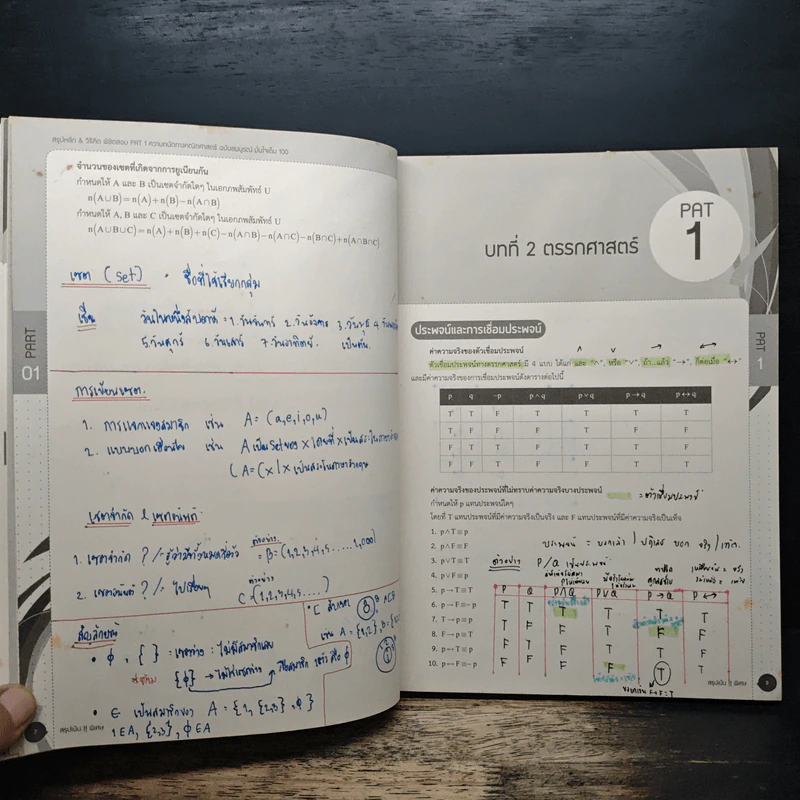 สรุปหลัก & วิธีคิด พิชิตสอบ PAT 1 ความถนัดทางคณิตศาสตร์ ฉบับสมบูรณ์ มั่นใจเต็ม 100
จำนวนของเซตที่เกิดจากการยูเนียนกัน
กำหนดให้ A และ B เป็นเซตจำกัดใดๆ ในเอกภพสัมพัทธ์ U
n(A∪B)=n(A)+n(B)−n(A∩B)
กำหนดให้ A, B และ C เป็นเซตจำกัดใดๆ ในเอกภพสัมพัทธ์ U
n(A∪B∪C)=n(A)+n(B)+n(C)−n(A∩B)−n(A∩C)−n(B∩C)+n(A∩B∩C)
เซต (set) • ชื่อที่ใช้เรียกกลุ่ม
เช่น วันในหนึ่งสัปดาห์ = 1.วันจันทร์ 2.วันอังคาร 3.วันพุธ 4.
5.วันศุกร์ 6.วันเสาร์ 7.วันอาทิตย์. เป็นต้น.
PART
01
การเขียนเซต.
1. การแจกแจงสมาชิก เช่น A = (a,e,i,o,u)
2. แบบบอกเงื่อนไข เช่น A เป็นSetของ x โดยที่ x เป็นสระในภาษาอังกฤษ
(A=(x|x เป็นสระในภาษาอังกฤษ
เซตจำกัด & เซตอนันต์
ตัวอย่าง
1. เซตจำกัด ?/= = B=(1,2,3,4,5.....1,000)
ตัวอย่าง
2. เซตอนันต์ ?/= ไปเรื่อยๆ C=(1,2,3,4,5....)
สัญลักษณ์
• ϕ , { } = เซตว่าง : ไม่มีสมาชิกเลย
{ϕ} → ไม่ใช่เซตว่าง
• ∈ เป็นสมาชิกของ A = {1, {2,3}, ϕ}
1∈A, {2,3}, ϕ∈A
สรุปเข้ม || พิเศษ
PAT
1
บทที่ 2 ตรรกศาสตร์
PAT
1
ประพจน์และการเชื่อมประพจน์
ค่าความจริงของตัวเชื่อมประพจน์
ตัวเชื่อมประพจน์ทางตรรกศาสตร์ มี 4 แบบ ได้แก่ และ "∧" หรือ "∨", ถ้า..แล้ว "→", ก็ต่อเมื่อ "↔"
และมีค่าความจริงของการเชื่อมประพจน์ดังตารางต่อไปนี้
p q ~p p∧q p∨q p→q p↔q
T T F T T T T
T F F F T F F
F T T F T T F
F F T F F T T
ค่าความจริงของประพจน์ที่ไม่ทราบค่าความจริงบางประพจน์ = ตัวเชื่อมประพจน์
กำหนดให้ p แทนประพจน์ใดๆ
โดยที่ T แทนประพจน์ที่มีค่าความจริงเป็นจริง และ F แทนประพจน์ที่มีค่าความจริงเป็นเท็จ
1. p∧T≡T
2. p∧F≡F
3. p∨T≡T
4. p∨F≡p
5. p→T≡T
6. p→F≡~p
7. T→p≡p
8. F→p≡T
9. p↔T≡p
10. p↔F≡~p
ประพจน์ = บอกเล่า / ปฏิเสธ บอก จริง / เท็จ.
ตัวอย่าง P/Q เป็นประพจน์
P Q P∧Q P∨Q P→Q P↔
T T T T T T
T F F T F F
F T F T T F
F F F F T T
สรุปเข้ม || พิเศษ